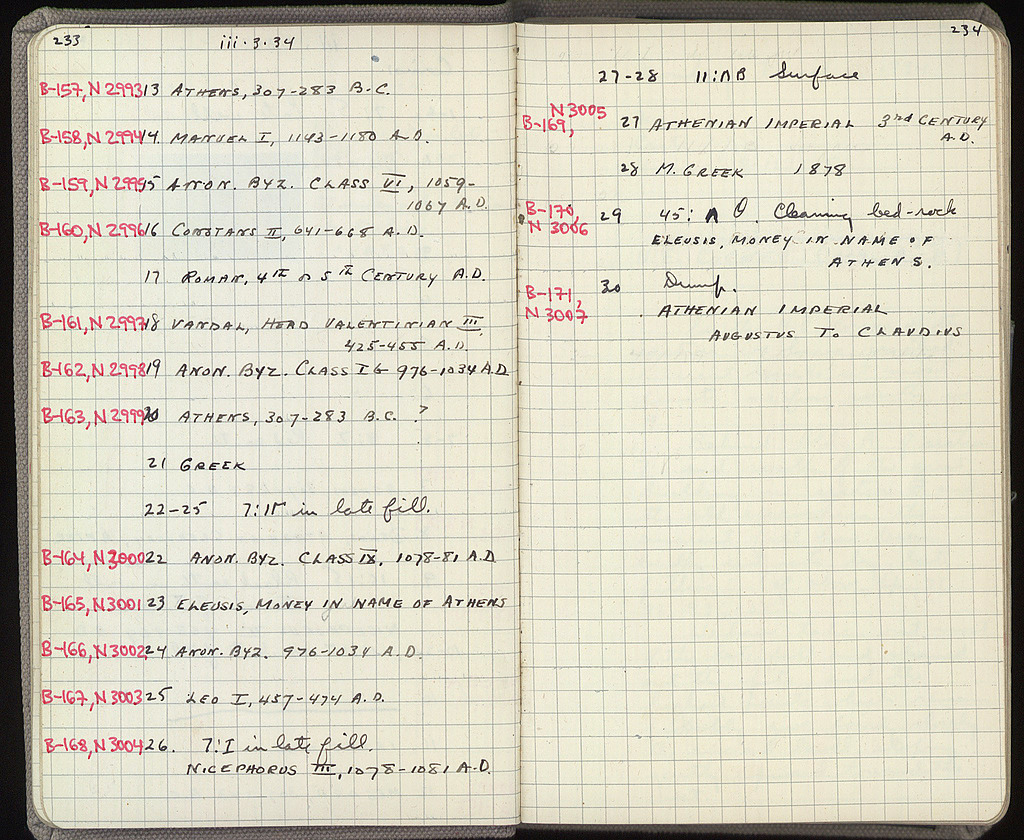 233 iii·3·34
B-157, N 2993 13 ATHENS, 307-283 B.C.
B-158, N 2994 14. MANUEL I, 1143-1180 A.D.
B-159, N 2995 15 ANON. BYZ. CLASS VI, 1059-
1067 A.D.
B-160, N 2996 16 CONSTANS II, 641-668 A.D.
17 ROMAN, 4TH or 5TH CENTURY A.D.
B-161, N 2997 18 VANDAL, HEAD VALENTINIAN III
425-455 A.D.
B-162, N 2998 19 ANON. BYZ. CLASS I 976-1034 A.D.
B-163, N 2999 20 ATHENS, 307-283 B.C. ?
21 GREEK
22-25 7:ΙΓ in late fill.
B-164, N 3000 22 ANON. BYZ. CLASS IX, 1078-81 A.D.
B-165, N 3001 23 ELEUSIS, MONEY IN NAME OF ATHENS
B-166, N 3002 24 ANON. BYZ. 976-1034 A.D.
B-167, N 3003 25 LEO I, 457-474 A.D.
B-168, N 3004 26. 7:I in late fill.
NICEPHORUS III, 1078-1081 A.D.
234
27-28 11:ΛΒ Surface
N 3005
B-169, 27 ATHENIAN IMPERIAL 3rd CENTURY
A.D.
28 M. GREEK 1878
B-170, 29 45: Λ Θ. Cleaning bed-rock
N 3006
ELEUSIS, MONEY IN NAME OF
ATHENS.
B-171, 30 Dump.
N 3007 . ATHENIAN IMPERIAL
AUGUSTUS TO CLAUDIUS